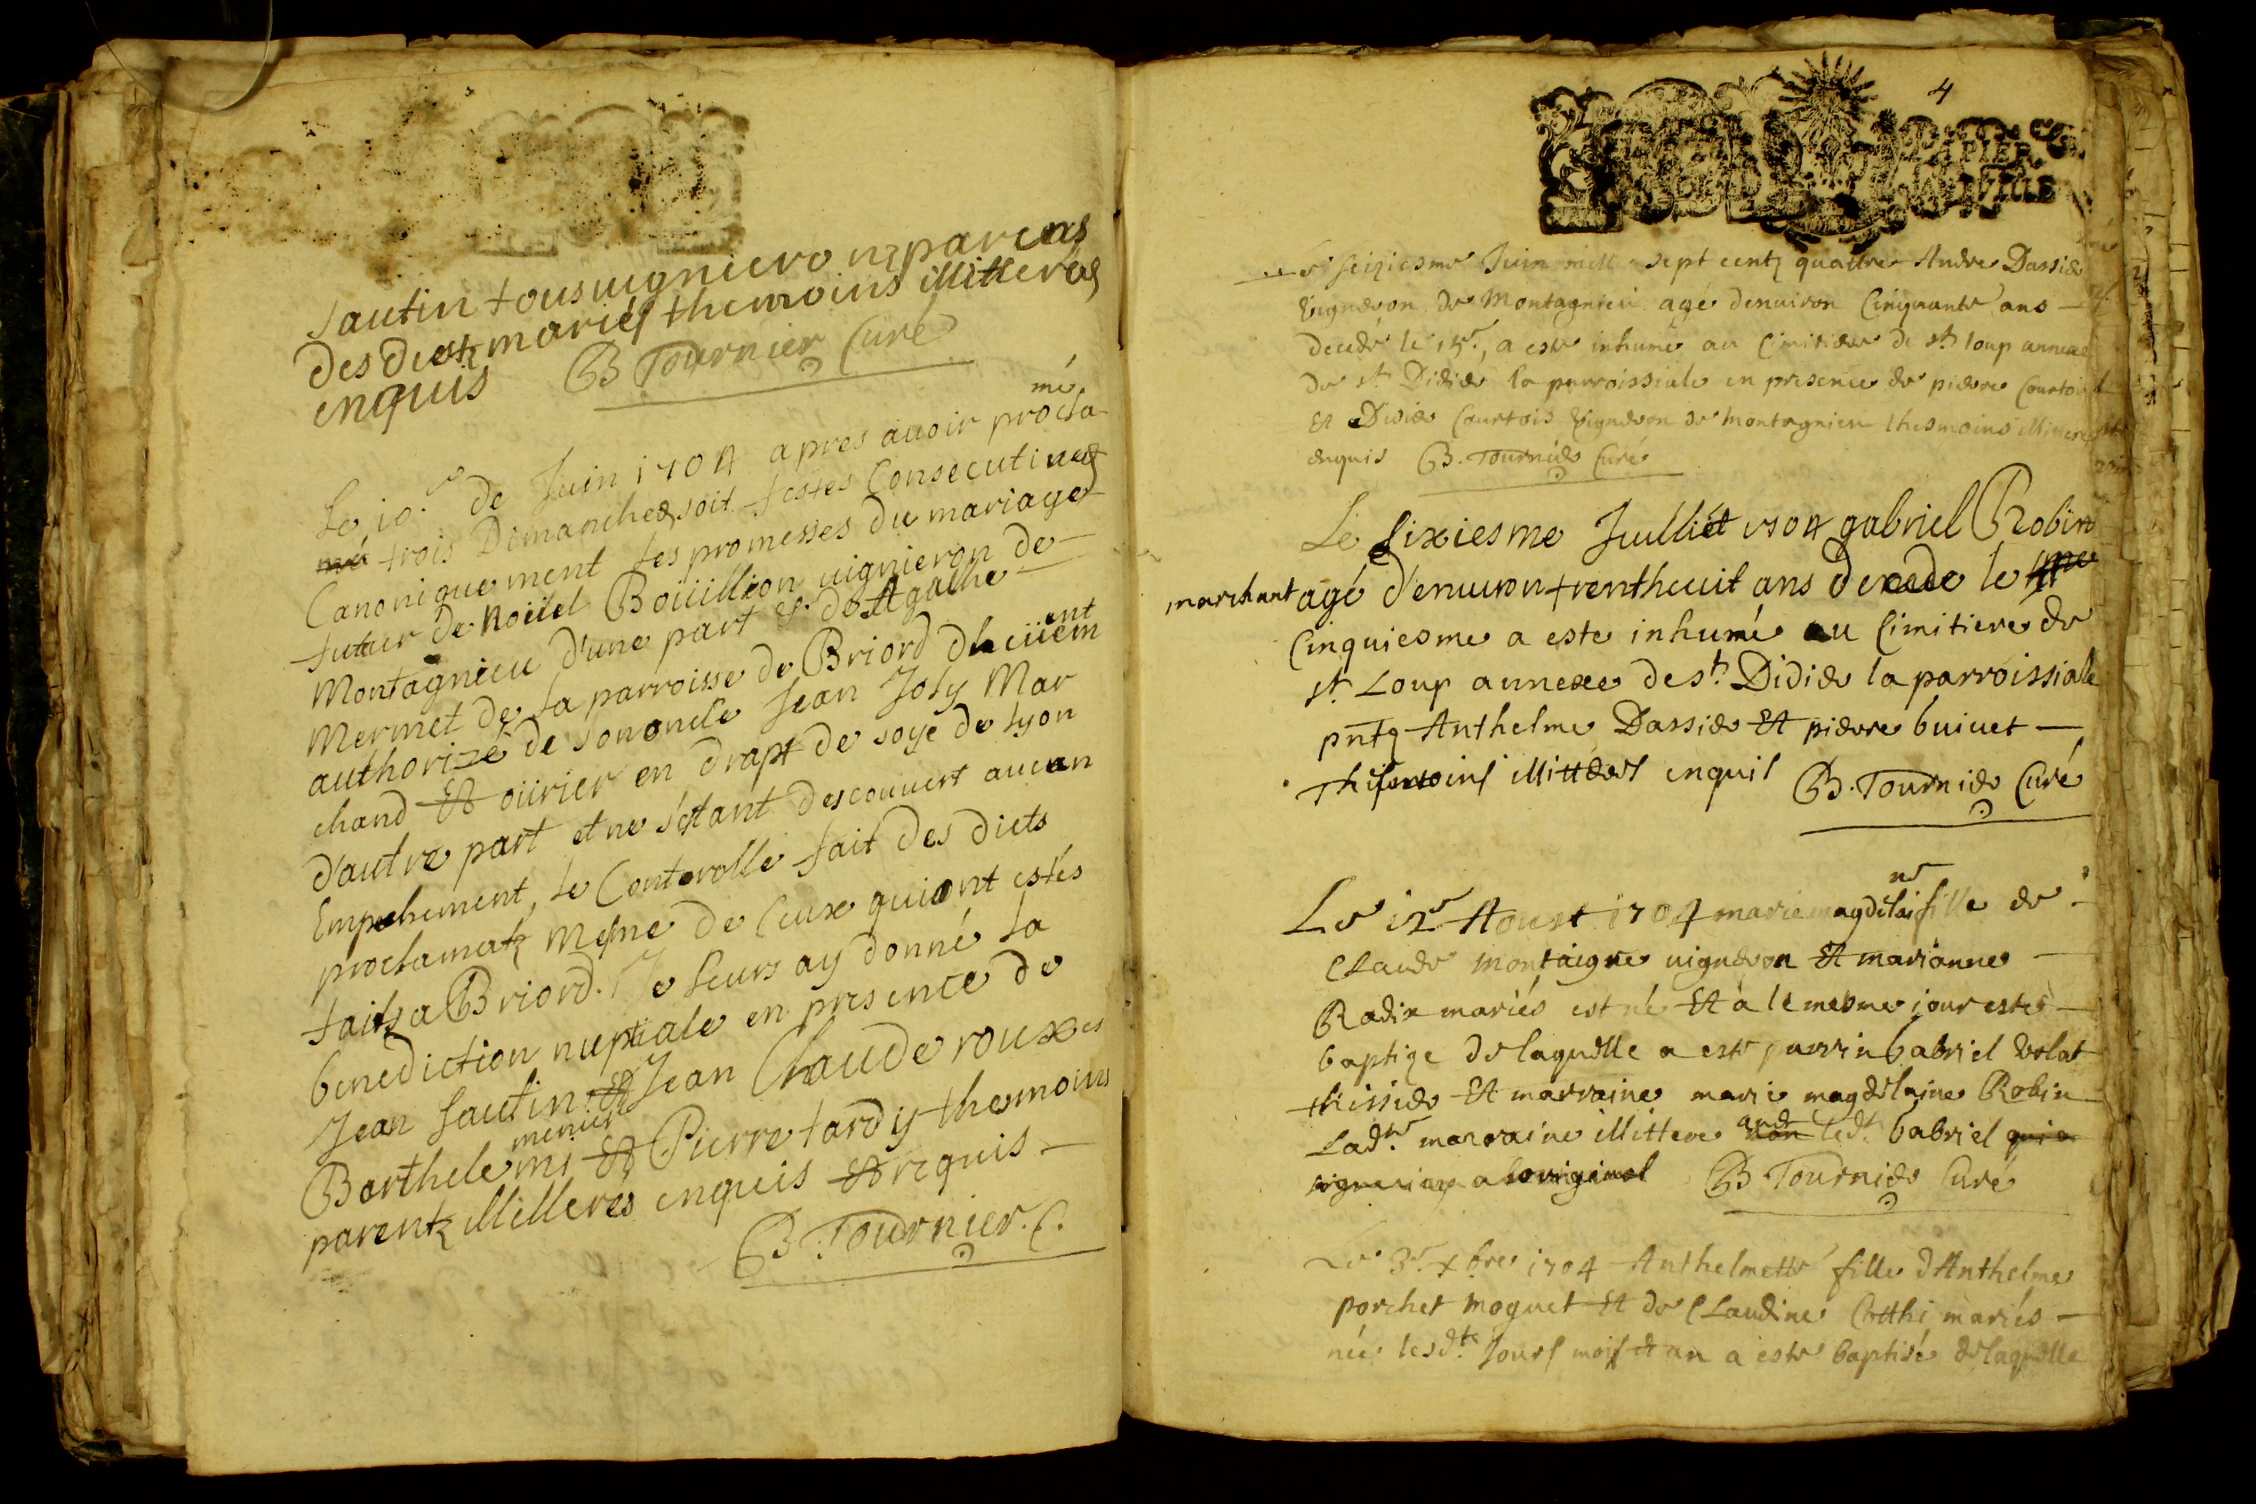 sautin tous uigniero nz parens
des dictz mariés themoins illitterés
enquis B Tournier Curé
Le 10.e de Juin 1704 apres auoir procla
mé
mé trois Dimanches soit festes Consecutiues
Canoniquement les promesses du mariage
futur de Noüel Boüillion uignieron de
Montagnieu d'une part & de Agathe
Mermet de la parroisse de Briord
ent
authorizé de son oncle Jean Joly Mar
chand Et oüurier en drapt de soye de Lyon
d'autre part et ne s'éstant descouuert aucun
Empechement, Le Conterolle fait des dicts
proclamatz mesme de Ceux qui ont estés
faits a Briord. Je leurs ay donné la
benediction nuptiale en presence de
Jean Sautin Et Jean Claude roux
menier
Barthelemi Et Pierre tardy themoins
parentz illitteres enquis Et requis
B. Tournier. C.
4
PAPIER
Le seiziesme Juin mill sept centz quattre Andre Dassier
Vigneron de Montagnieu agé denuiron Cinquante ans
decedé le 15e, a esté inhumé au Cimitiere de st loup annexe
de st Didier la parroissiale en presence de pierre Courtois
Et Didier Courtois Vigneron de montagnieu thesmoins illitteres
enquis B. Tournier Curé
Le sixiesme Juilliét 1704 gabriel Robin
marchant agé d'enuiron trenthuit ans decede le 4me
Cinquiesme a este inhumé au Cimitiere de
st Loup annexe de st Didier la parroissiale
pntz Anthelme Dassier Et pierre buiuet
Thesmoins illitterés enquis B. Tournier Curé
Le 12e Aoust 1704 marie magdelai fille de
ne
Claude montaigne uigneron Et marianne
Radix mariés est né Et a le mesme jour esté
baptize de laquelle a esté parrin Gabriel Volat
thissier Et marraine marie magdelaine Robin
Ladte. marraine illittere non ledt. Gabriel qui a
and
signé a loriginal B Tournier Curé
Le 3e xbre 1704 Anthelmette fille d'Anthelme
porchet moguet Et de Claudine mariés
née lesdts Jours mois et an a esté baptisé de laquelle